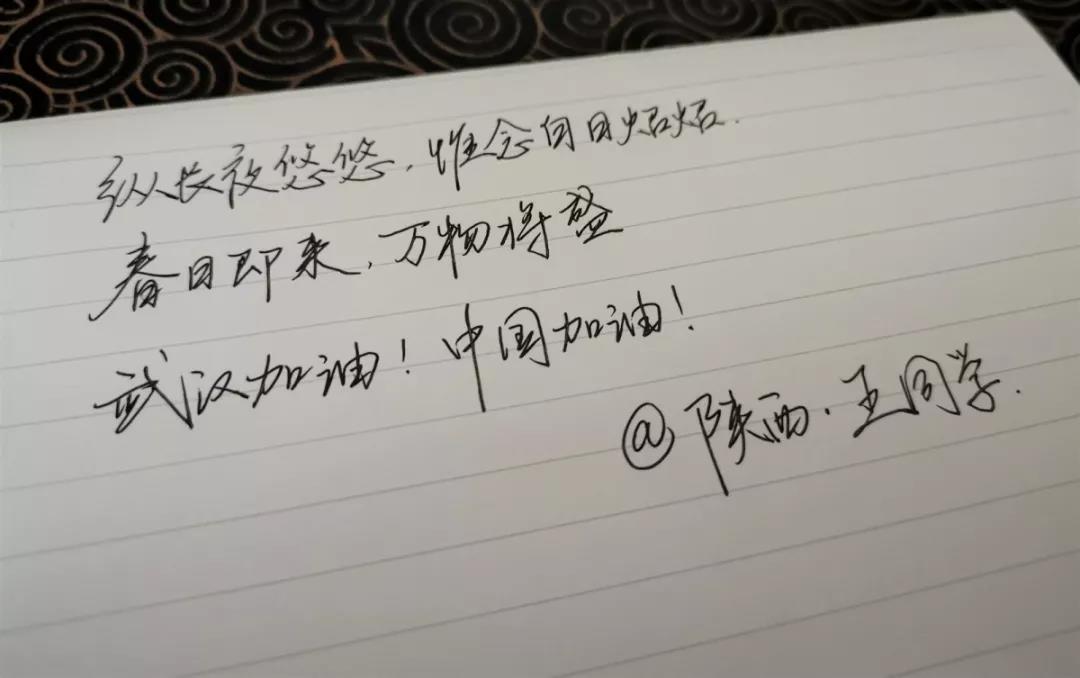 纵长夜悠悠,惟念白日炤炤.
春日即来,万物将盛
武汉加油!中国加油!
@陕西·王同学.